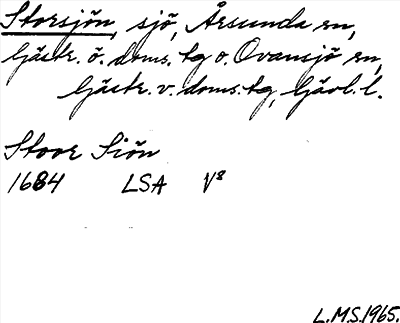 Storsjön, sjö, Årsunda sn,
Gästr. ö. doms. tg o. Ovansjö sn,
Gästr. v. doms. tg, Gävl. l.
Stoor Siön
1684 LSA V8
L.M.S. 1965.